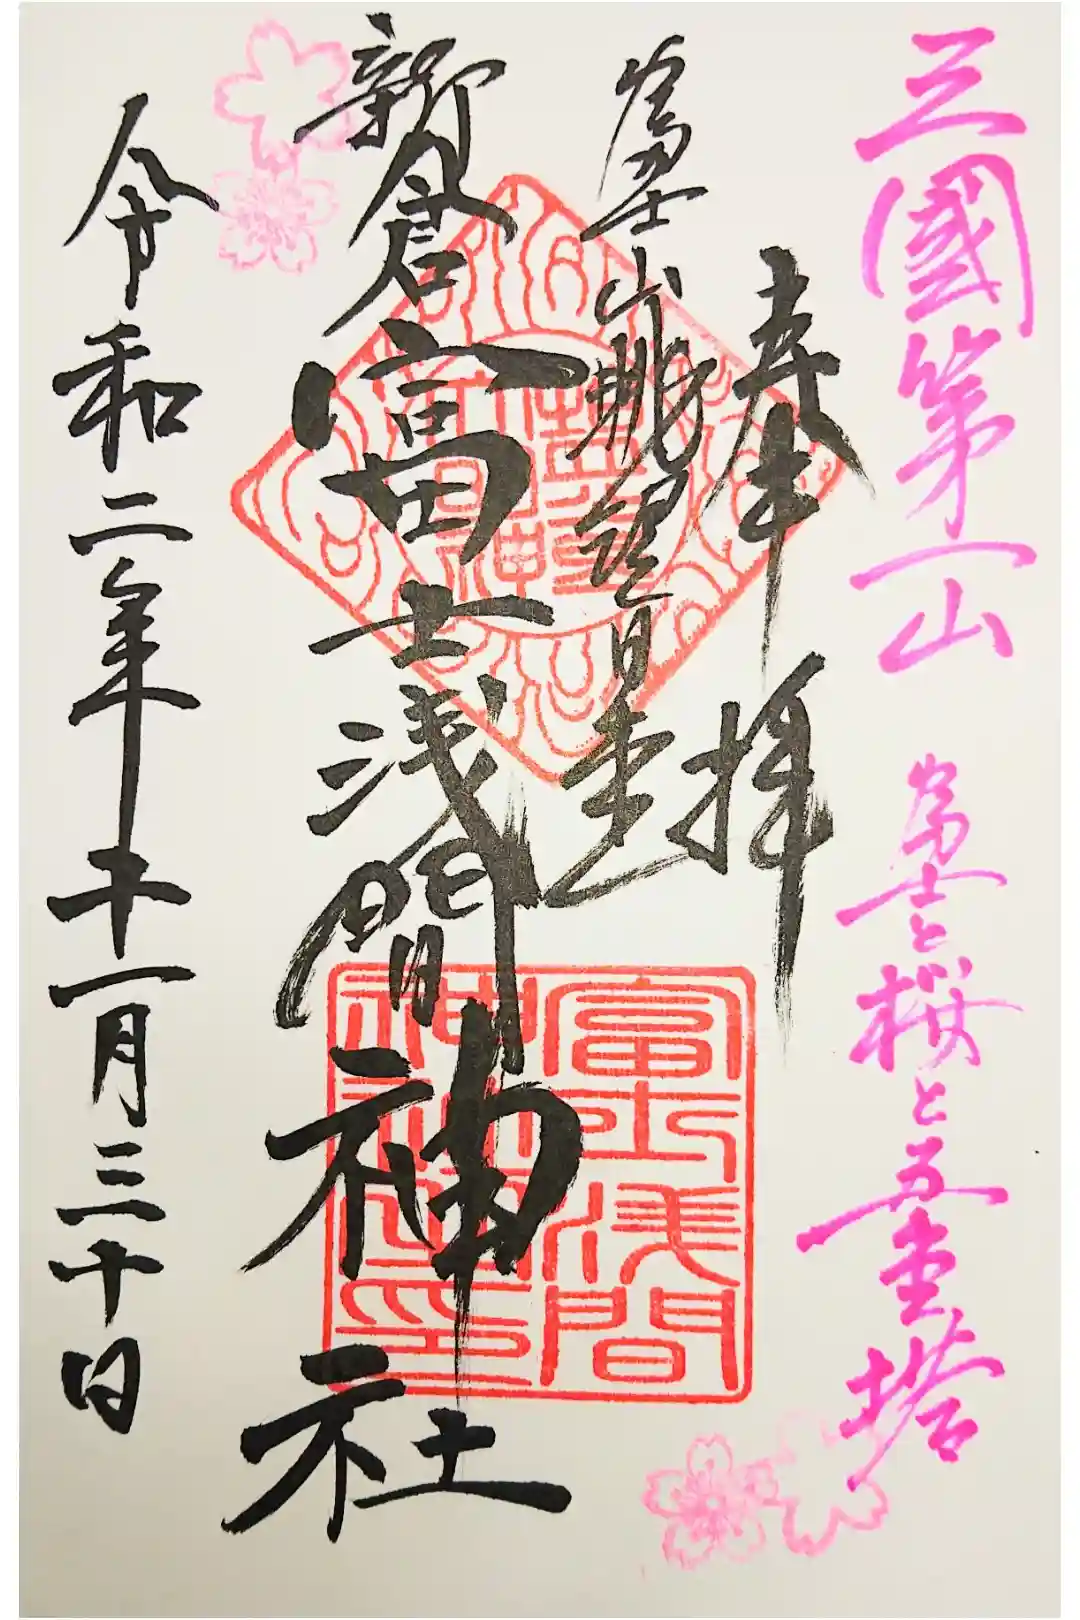 三國第一山 富士と桜と五重塔
奉拝
富士山眺望
新倉富士浅間神社
令和二年十一月三十日
富士浅間